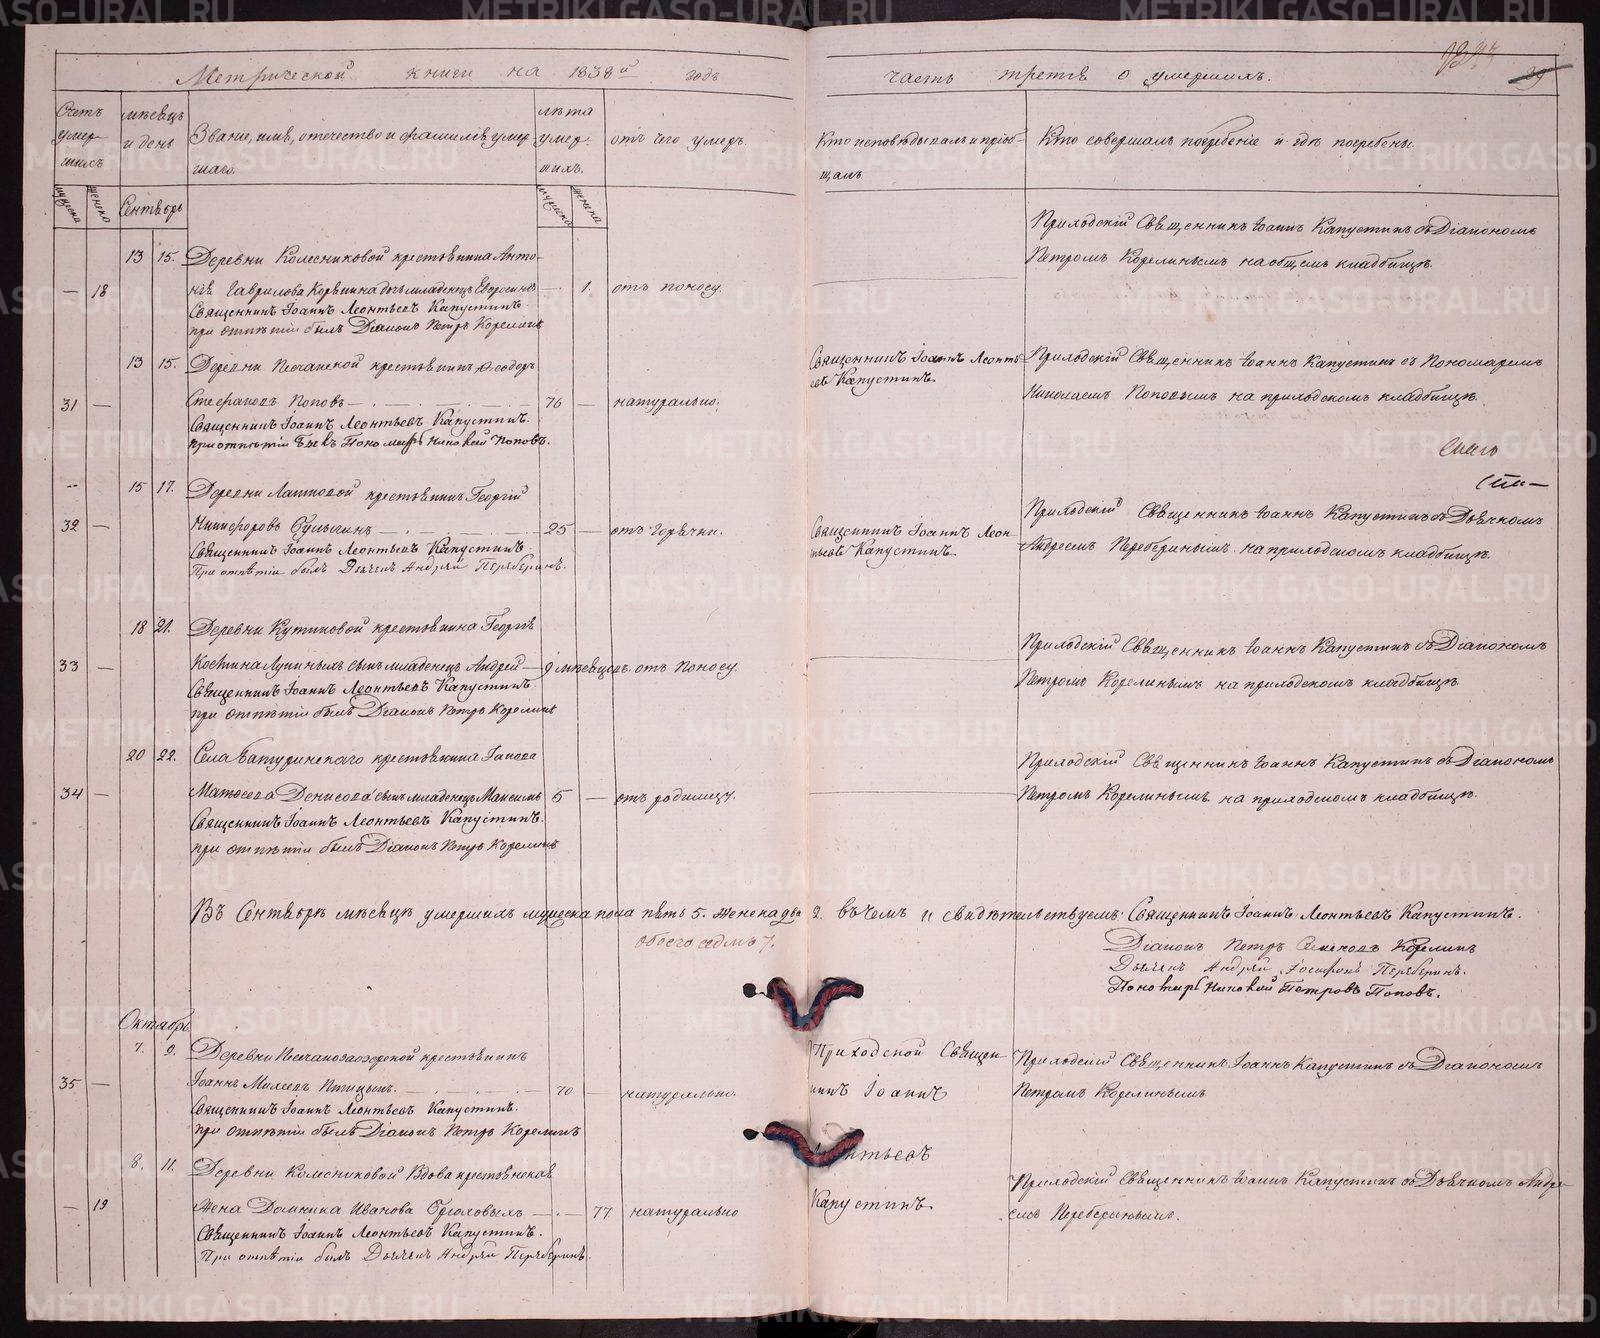 Метрической книги на 1838й годъ
часть третія о умершихъ.
39
Счетъ умер-
шихъ
мѣсяцъ
и день
Званіе, имя, отечество и фамилія умер-
шаго.
лѣта
умер-
шихъ.
отъ чего умеръ.
Кто исповѣдывалъ и пріоб-
щалъ.
Кто совершалъ погребеніе и гдѣ погребены.
мужеска
женска
Сентябрь
мужеска
женска
13 15. Деревни Колесниковой крестьянина Анто-
— 18 нія Гаврилова Корякина дочь младенецъ — 1. отъ поносу.
Священникъ Іоаннъ Леонтьевъ Капустинъ.
при отпѣтіи былъ Діаконъ Петръ Корелинъ
Приходскій Священникъ Іоаннъ Капустинъ съ Діакономъ
Петромъ Корелинымъ на общемъ кладбищѣ.
13 15. Деревни Песчанской крестьянинъ Ѳеодоръ
31 — Стефановъ Поповъ 76 — натурально.
Священникъ Іоаннъ Леонтьевъ Капустинъ.
при отпѣтіи былъ Пономарь Николай Поповъ.
Священникъ Іоаннъ Леонть-
евъ Капустинъ.
Приходскій Священникъ Іоаннъ Капустинъ съ Пономаремъ
Николаемъ Поповымъ на приходскомъ кладбищѣ.
15 17. Деревни крестьянинъ Георгій
32 — Никифоровъ Булыгинъ 25 — отъ горячки.
Священникъ Іоаннъ Леонтьевъ Капустинъ
При отпѣтіи былъ Дьячекъ Андрей Переберинъ.
Священникъ Іоаннъ Леон-
тьевъ Капустинъ.
Приходскій Священникъ Іоаннъ Капустинъ съ Дьячкомъ
Андреемъ Переберинымъ на приходскомъ кладбищѣ.
18 21. Деревни Кутиковой крестьянина Георгія
33 — сынъ младенецъ Андрей — 9 мѣсяцевъ. отъ поносу.
Священникъ Іоаннъ Леонтьевъ Капустинъ.
при отпѣтіи былъ Діаконъ Петръ Корелинъ
Приходскій Священникъ Іоаннъ Капустинъ съ Діакономъ
Петромъ Корелинымъ на приходскомъ кладбищѣ.
20 22. Села Батуринскаго крестьянина Іакова
34 — Матвеева Денисова сынъ младенецъ Максимъ 5 — отъ родимцу.
Священникъ Іоаннъ Леонтьевъ Капустинъ.
при отпѣтіи былъ Діаконъ Петръ Корелинъ
Приходскій Священникъ Іоаннъ Капустинъ съ Діакономъ
Петромъ Корелинымъ на приходскомъ кладбищѣ.
Въ Сентябрѣ мѣсяцѣ умершихъ мужеска пола пять 5. женска два 2. въ чемъ и свидѣтельствуемъ Священникъ Іоаннъ Леонтьевъ Капустинъ.
обоего седмь 7.
Діаконъ Петръ Семеновъ Корелинъ
Дьячекъ Андрей Іосифовъ Переберинъ.
Пономарь Николай Петровъ Поповъ.
Октябрь
7. 9. Деревни Песчанозаозерской крестьянинъ
35 — Іоаннъ Птицынъ. 70 — натурально.
Священникъ Іоаннъ Леонтьевъ Капустинъ.
при отпѣтіи былъ Діаконъ Петръ Корелинъ
Приходской Священ-
никъ Іоаннъ
Приходскій Священникъ Іоаннъ Капустинъ съ Діакономъ
Петромъ Корелинымъ
8. 11. Деревни Колесниковой Вдова крестьянская
— 19 жена Домника Иванова — 77 натурально
Священникъ Іоаннъ Леонтьевъ Капустинъ.
При отпѣтіи былъ Дьячекъ Андрей Переберинъ.
Капустинъ.
Приходскій Священникъ Іоаннъ Капустинъ съ Дьячкомъ Андре-
емъ Переберинымъ.
METRIKI.GASO-URAL.RU